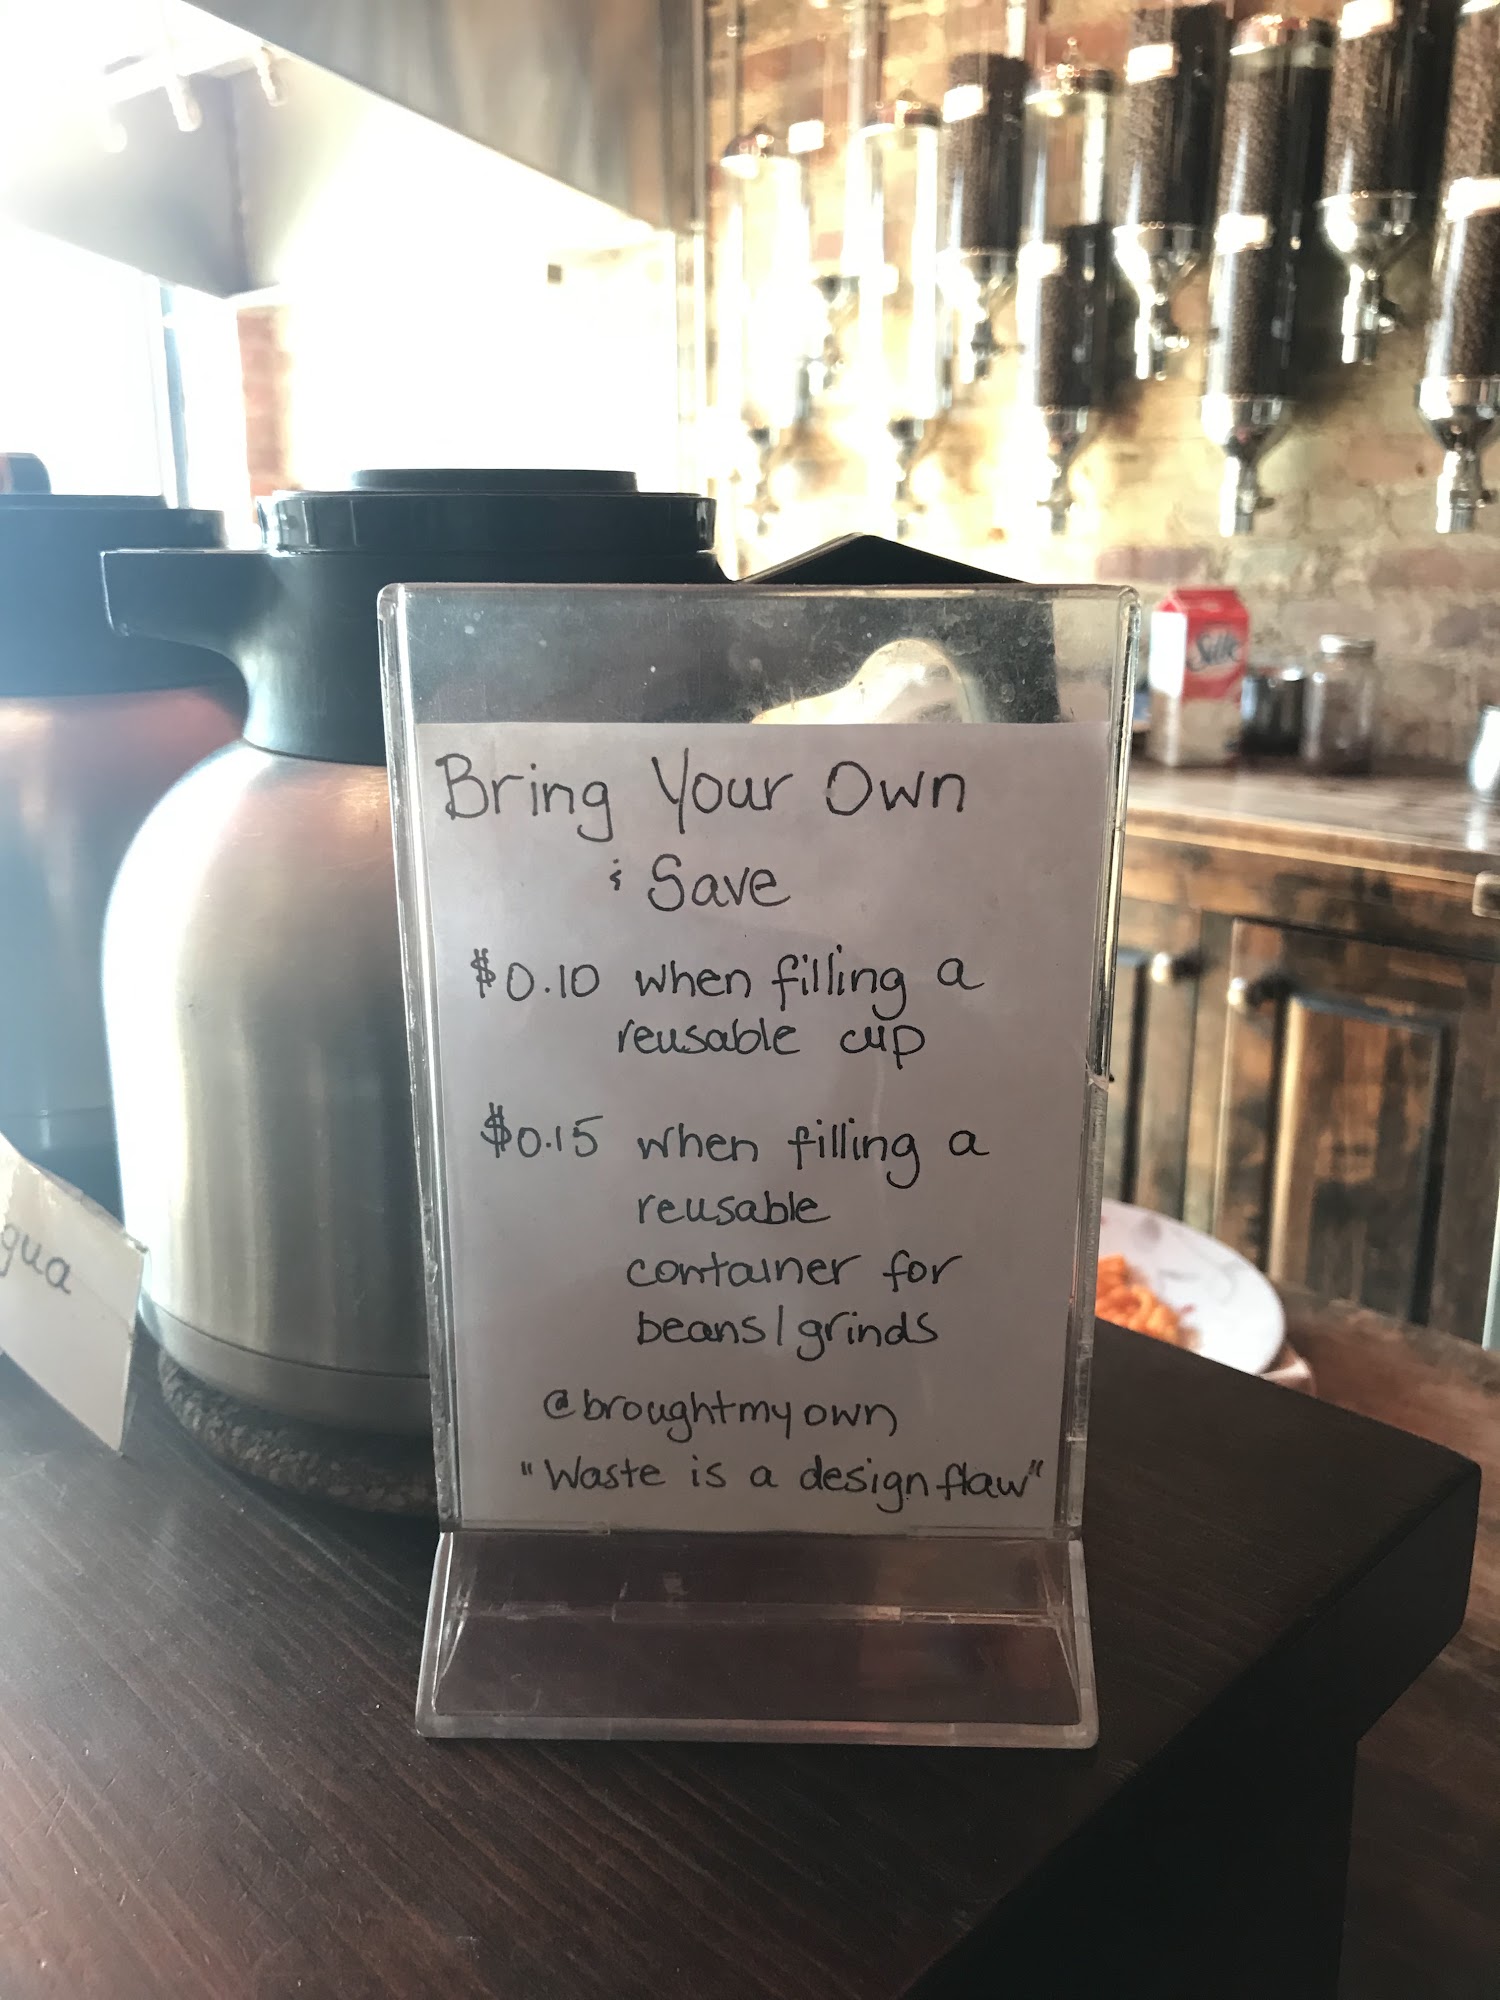 Silk
Bring Your Own
& Save
$0.10 when filling a
reusable cup
$0.15 when filling a
reusable
container for
beans/grinds
@broughtmyown
"Waste is a design flaw"
gua